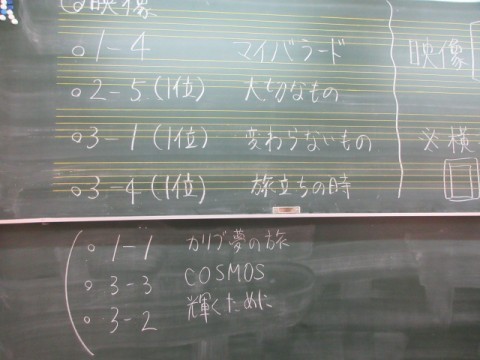 映像
○1-4 マイバラード
○2-5(1位) 大切なもの
○3-1(1位) 変わらないもの
○3-4(1位) 旅立ちの時
映像
※横
○1-1 カリブ夢の旅
○3-3 COSMOS
○3-2 輝くために